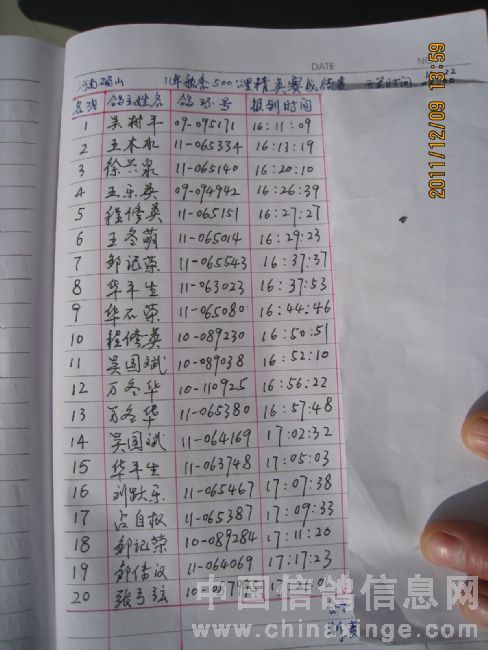 DATE
NO
河南确山 11年秋季500公里精英赛成绩表 开笼时间
2011/12/09 13:59
名次 鸽主姓名 鸽环号 报到时间
1 吴树平 09-095171 16:11:09
2 王木水 11-065334 16:13:19
3 徐兴泉 11-065140 16:20:10
4 王乐英 09-094942 16:26:39
5 程修英 11-065151 16:27:27
6 王冬萌 11-065014 16:29:23
7 邹记荣 11-065543 16:37:37
8 华平生 11-063023 16:37:53
9 华石荣 11-065080 16:44:46
10 程修英 10-089230 16:50:51
11 吴国斌 10-089038 16:52:10
12 万冬华 10-110925 16:56:22
13 万冬华 11-065380 16:57:48
14 吴国斌 11-064169 17:02:32
15 华平生 11-063748 17:05:03
16 刘跃乐 11-065467 17:07:38
17 占自权 11-065387 17:09:33
18 邹记荣 10-089284 17:11:20
19 11-064069 17:17:23
20 张弓弦
中国信鸽信息网
www.chinaxinge.com